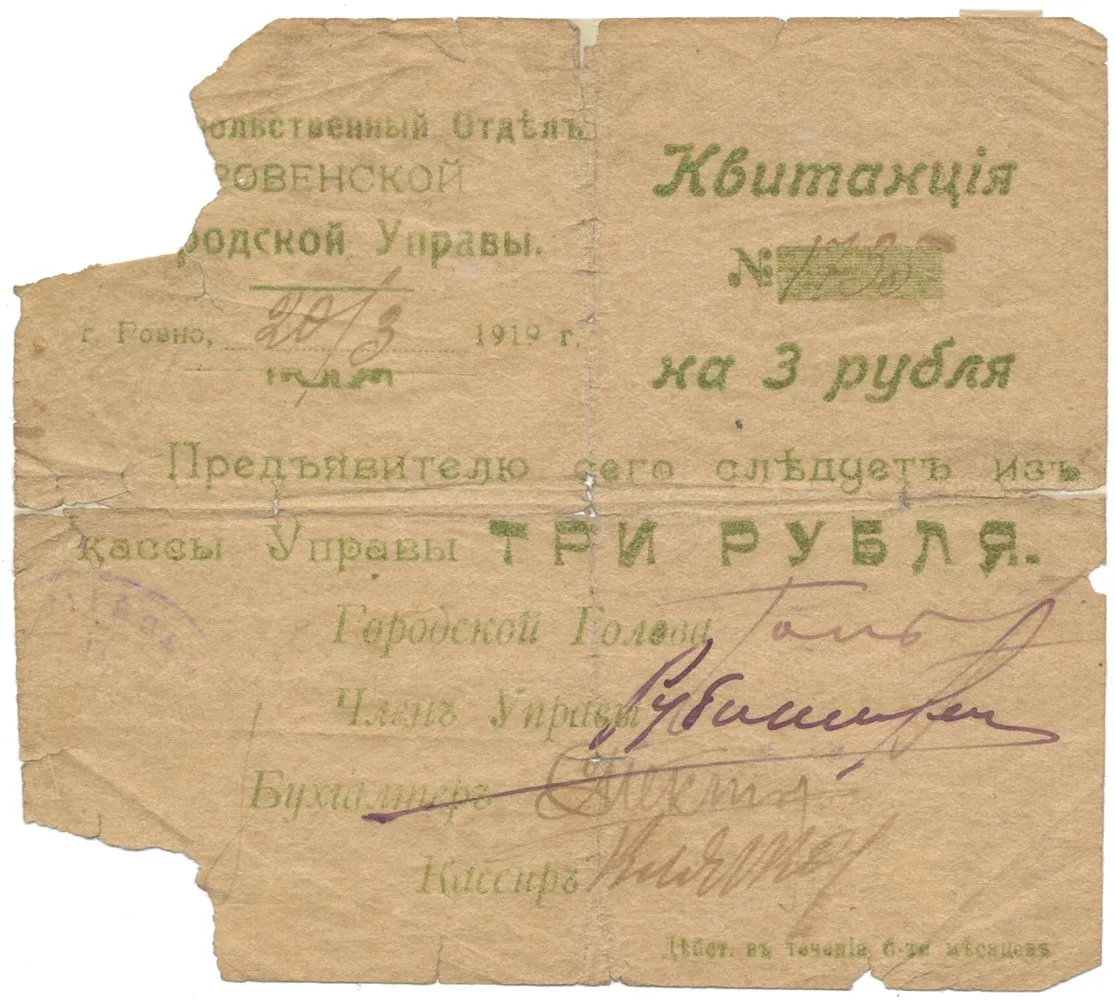 ольственный Отдѣлъ
РОВЕНСКОЙ
родской Управы.
г. Ровно, 20/3 1919 г.
Квитанція
№
на 3 рубля
Предъявителю сего слѣдуетъ изъ
кассы Управы ТРИ РУБЛЯ.
Городской Голова
Членъ Управы
Бухгалтеръ
Кассиръ
Дѣйст. въ теченіи 6-ти мѣсяцевъ